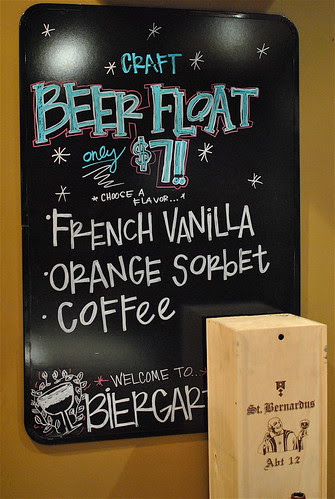 CRAFT
BEER FLOAT
only $7!!
*CHOOSE A
FLAVOR...*
·FRENCH VANILLA
·ORANGE SORBET
·COFFEE
*WELCOME TO...
BIERGAR
St. Bernardus
Abt 12